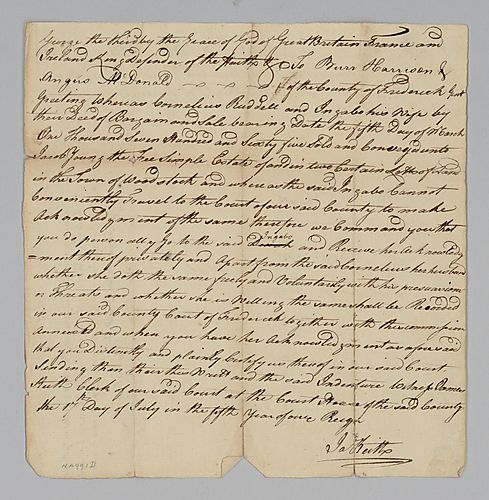 George the third by the Grace of God of Great Britain France and
Ireland King Defender of the Faith &c To Burr Harrison &
Angus McDonald of the County of Frederick Gent
Greeting Whereas Cornelius Ruddell and Ingabo his Wife by
their Deed of Bargain and Sale bearing Date the fifth Day of March
One Thousand Seven Hundred and Sixty five Sold and Conveyed unto
Jacob Young the Fee Simple Estate of and in two Certain Lotts of Land
in the Town of Woodstock and whereas the said Ingabo Cannot
Conveniently Travel to the Court of our said County to make
Acknowledgment of the same therefore we Command you that
you do personally go to the said Ingabo and Receive her Acknowledg
=ment thereof privately and Apart from the said Cornelius her husband
whether she doth the same freely and Voluntarily with his persuasions
or Threats and whether she is Willing the same shall be Recorded
in our said County Court of Frederick together with the commission
Annexed and when you have her Acknowledgment as aforesaid
that you Distinctly and plainly Certify us thereof in our said Court
Sending then their this Writt and the said Indenture Witness James
Keith Clerk of our said Court at the Court House of the said County
the 1st Day of July in the fifth Year of our Reign
Jas Keith
NA491D